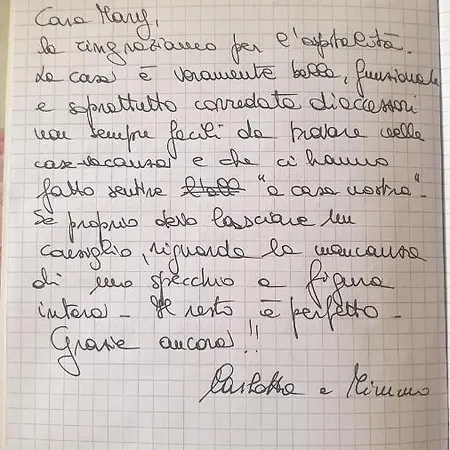 Cara Mary,
la ringraziamo per l'ospitalità.
La casa è veramente bella, funzionale
e soprattutto corredata di accessori
non sempre facili da trovare nelle
case-vacanza e che ci hanno
fatto sentire "a casa nostra".
Se proprio devo lasciare un
consiglio, riguarda la mancanza
di uno specchio a figura
intera - Il resto è perfetto -
Grazie ancora!!
Carlotta e Mimmo